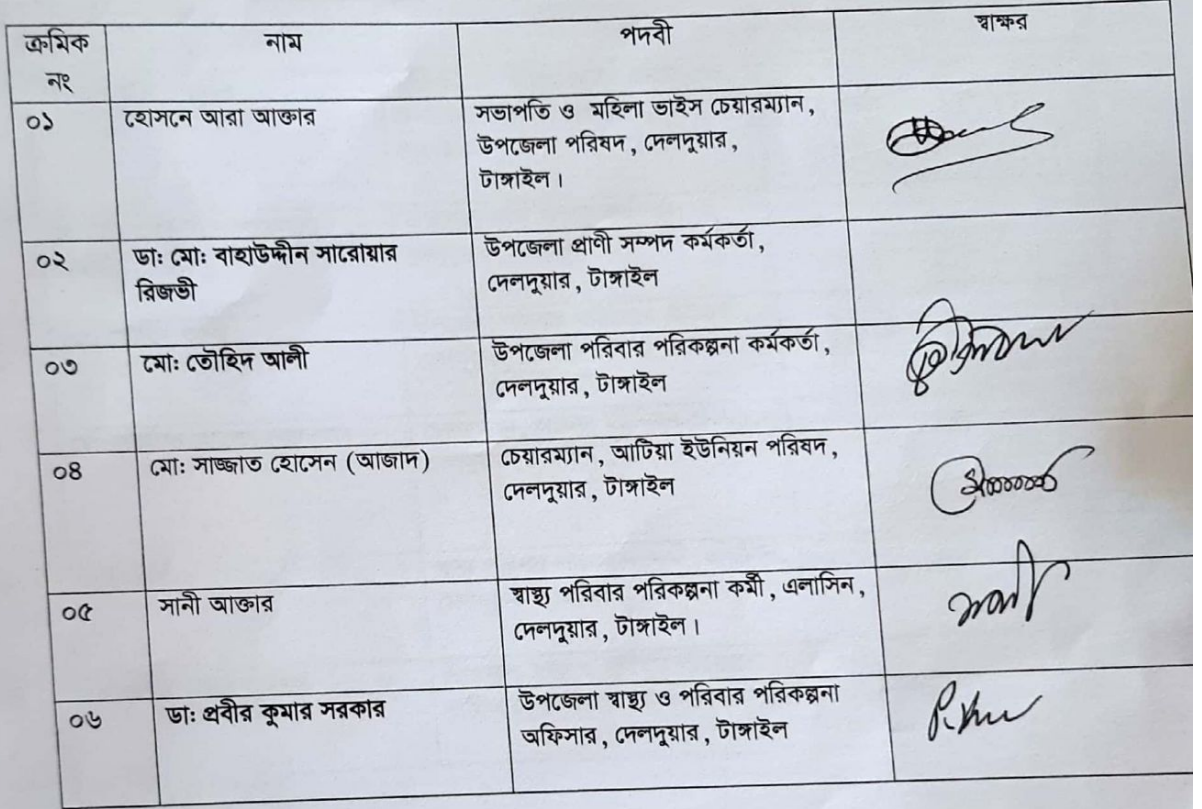 ক্রমিক নং নাম পদবী স্বাক্ষর
০১ হোসনে আরা আক্তার সভাপতি ও মহিলা ভাইস চেয়ারম্যান,
উপজেলা পরিষদ, দেলদুয়ার,
টাঙ্গাইল।
০২ ডাঃ মোঃ বাহাউদ্দীন সারোয়ার রিজভী উপজেলা প্রাণী সম্পদ কর্মকর্তা,
দেলদুয়ার, টাঙ্গাইল
০৩ মোঃ তৌহিদ আলী উপজেলা পরিবার পরিকল্পনা কর্মকর্তা,
দেলদুয়ার, টাঙ্গাইল
০৪ মোঃ সাজ্জাত হোসেন (আজাদ) চেয়ারম্যান, আটিয়া ইউনিয়ন পরিষদ,
দেলদুয়ার, টাঙ্গাইল
০৫ সানী আক্তার স্বাস্থ্য পরিবার পরিকল্পনা কর্মী, এলাসিন,
দেলদুয়ার, টাঙ্গাইল।
০৬ ডাঃ প্রবীর কুমার সরকার উপজেলা স্বাস্থ্য ও পরিবার পরিকল্পনা
অফিসার, দেলদুয়ার, টাঙ্গাইল